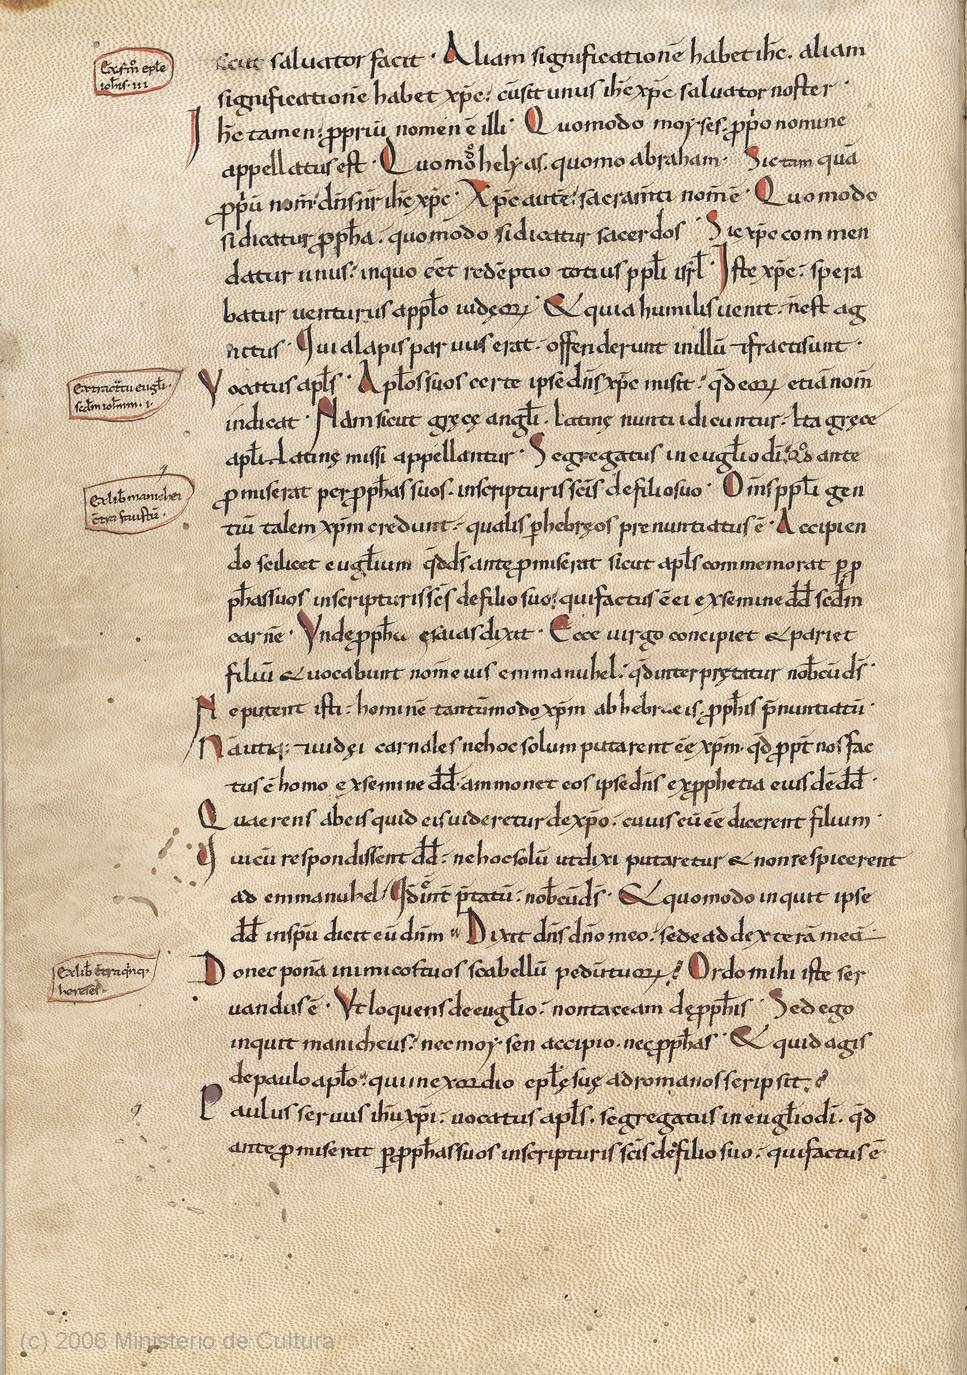 Ex serm eple
iohis · III
sicut salvator facit · Aliam significatione habet ihc · aliam
significatione habet xpc : cu sit unus ihc xpc salvator noster ·
Ihc tamen : ppriu nomen e illi · Quomodo moyses · pprio nomine
appellatus est · Quomo helyas · quomo abraham · Sic tam qua
ppriu nom dns nr ihc xpc · Xpc aute : sacramti nom e · Quomodo
si dicatur ppha · quomodo si dicatur sacerdos · Sic xpc commen
datur unus : in quo eet redeptio totius ppli isrl · Iste xpc : spera
batur venturus a pplo iudeorum · Et quia humilis venit : n est ag
nitus · Quia lapis parvus erat · offenderunt in illu et fracti sunt ·
Extractu eugli ·
scdm iohnm · I ·
Vocatus apls · Aplos suos certe ipse dns xpc misit : qd eorum etia nom
indicat · Nam sicut grece angli · latine nuntii dicuntur · Ita grece
apli · latine missi appellantur · Segregatus in euglio di · Quod ante
Ex lib manichei
ctra faustu ·
promiserat per pphas suos · in scripturis scis de filio suo · Oms ppli gen
tiu talem xpm credunt · qualis p hebreos prenuntiatus e · Accipien
do scilicet euglium qd ds ante promiserat sicut apls commemorat p p
phas suos in scripturis scis de filio suo : qui factus e ei ex semine dd scdm
carne · Unde ppha esaias dixit · Ecce virgo concipiet & pariet
filiu & vocabunt nome eius emmanuhel : qd interpretatur nobcu ds ·
Ne putent isti : homine tantumodo xpm ab hebraeis pphis pnuntiatu ·
Na utiq : et iudei carnales ne hoc solum putarent ee xpm · qd ppt nos fac
tus e homo ex semine dd · ammonet eos ipse dns ex pphetia eius de dd ·
Quaerens ab eis quid eis videretur de xpo : cuius eu ee dicerent filium ·
Qui cu respondissent dd : ne hoc solu ut dixi putaretur & non respicerent
ad emmanuhel · Qd int ptatu : nobcu ds · Et quomodo inquit ipse
dd in spu dicit eu dnm · Dixit dns dno meo : sede ad dextera mea
Ex lib
hereses
Donec pona inimicos tuos scabellu pedu tuorum · Ordo mihi iste ser
vandus e · Ut loquens de euglio : non taceam de pphis · Sed ego
inquit manicheus : nec moysen accipio · nec pphas · Et quid agis
de paulo aplo : qui in exordio eple sue ad romanos scripsit ·
Paulus servus ihu xpi : vocatus apls · segregatus in euglio di · qd
ante promiserat p pphas suos in scripturis scis de filio suo : qui factus e
(c) 2006 Ministerio de Cultura